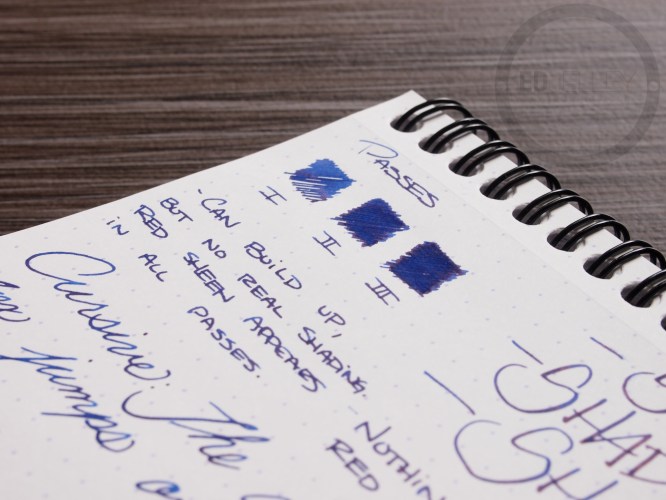 PASSES
I
II
III
- CAN BUILD UP,
BUT NO REAL SHADING.
RED SHEEN APPEARS
IN ALL PASSES.
Cursive: The
jumps
NOTHIN
RED
- SHAD
- SH